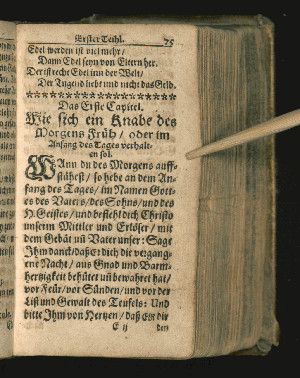 Erster Teihl. 75
Edel werden ist viel mehr /
Dann Edel seyn von Eltern her.
Der ist recht Edel inn der Welt /
Der Tugend liebt und nicht das Geld.
Das Erste Capitel.
Wie sich ein Knabe des
Morgens Früh / oder im
Anfang des Tages verhalt-
en sol.
WAnn du des Morgens auff-
stühest / so hebe an dem An-
fang des Tages / im Namen Gott-
es des Vaters / des Sohns / und des
H. Geistes / und befiehl dich Christo
unserm Mittler und Erlöser / mit
dem Gebät uñ Vater unser: Sage
Ihm danck / daß Er dich die vergang-
ene Nacht / aus Gnad und Barm-
hertzigkeit behütet uñ bewahret hat /
vor Feür / vor Sünden / und vor der
List und Gewalt des Teufels: Und
bitte Ihm von Hertzen / daß Er dir
E ij den